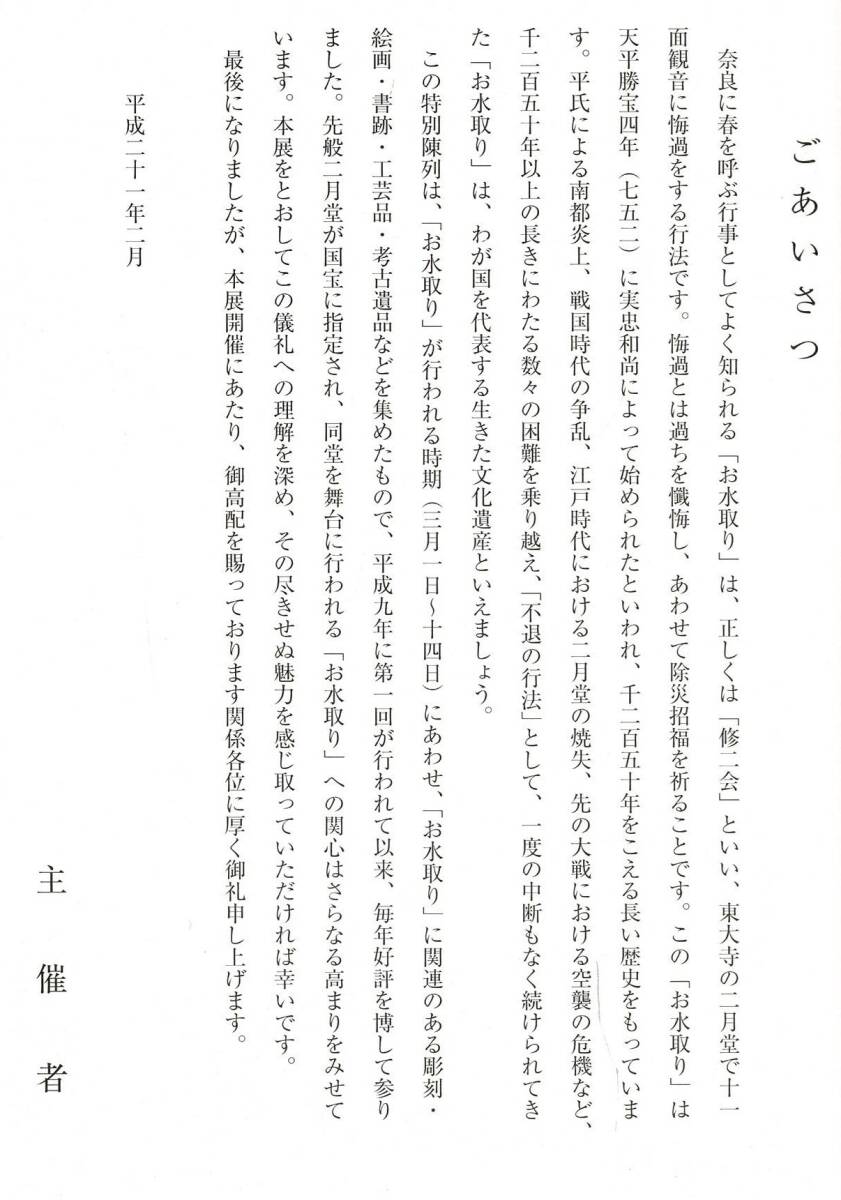 ごあいさつ
奈良に春を呼ぶ行事としてよく知られる「お水取り」は、正しくは「修二会」といい、東大寺の二月堂で十一
面観音に悔過をする行法です。悔過とは過ちを懺悔し、あわせて除災招福を祈ることです。この「お水取り」は
天平勝宝四年（七五二）に実忠和尚によって始められたといわれ、千二百五十年をこえる長い歴史をもっていま
す。平氏による南都炎上、戦国時代の争乱、江戸時代における二月堂の焼失、先の大戦における空襲の危機など、
千二百五十年以上の長きにわたる数々の困難を乗り越え、「不退の行法」として、一度の中断もなく続けられてき
た「お水取り」は、わが国を代表する生きた文化遺産といえましょう。
この特別陳列は、「お水取り」が行われる時期（三月一日～十四日）にあわせ、「お水取り」に関連のある彫刻・
絵画・書跡・工芸品・考古遺品などを集めたもので、平成九年に第一回が行われて以来、毎年好評を博して参り
ました。先般二月堂が国宝に指定され、同堂を舞台に行われる「お水取り」への関心はさらなる高まりをみせて
います。本展をとおしてこの儀礼への理解を深め、その尽きせぬ魅力を感じ取っていただければ幸いです。
最後になりましたが、本展開催にあたり、御高配を賜っております関係各位に厚く御礼申し上げます。
平成二十一年二月
主催者